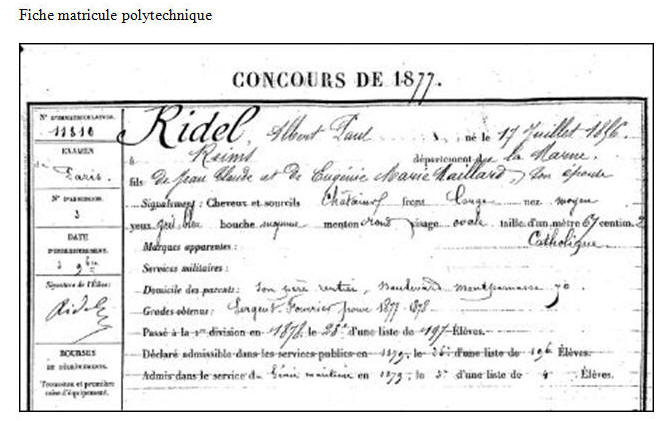 Fiche matricule polytechnique
CONCOURS DE 1877.
N° D'IMMATRICULATION.
11810
EXAMEN
de Paris.
N° D'ADMISSION
3
DATE
D'ENREGISTREMENT.
3 9bre
Signature de l'Élève:
Ridel
BOURSES
OU DÉGRÈVEMENTS.
Trousseau et première
mise d'équipement.
Ridel, Albert Paul né le 17 Juillet 1856.
à Reims département de la Marne.
fils de Jean Claude et de Eugénie Marie Maillard, son épouse
Signalement: Cheveux et sourcils Châtains front large nez moyen
yeux gris bleu bouche moyenne menton rond visage ovale taille d'un mètre 67 centim. 2
Marques apparentes: Catholique
Services militaires:
Domicile des parents: son père rentier, Boulevard Montparnasse 70.
Grades obtenus: Sergent Fourrier pour 1877-1878
Passé à la 1re division en 1878, le 28e d'une liste de 197 Élèves.
Déclaré admissible dans les services publics en 1879, le 36e d'une liste de 196 Élèves.
Admis dans le service du Génie maritime en 1879, le 3e d'une liste de 4 Élèves.